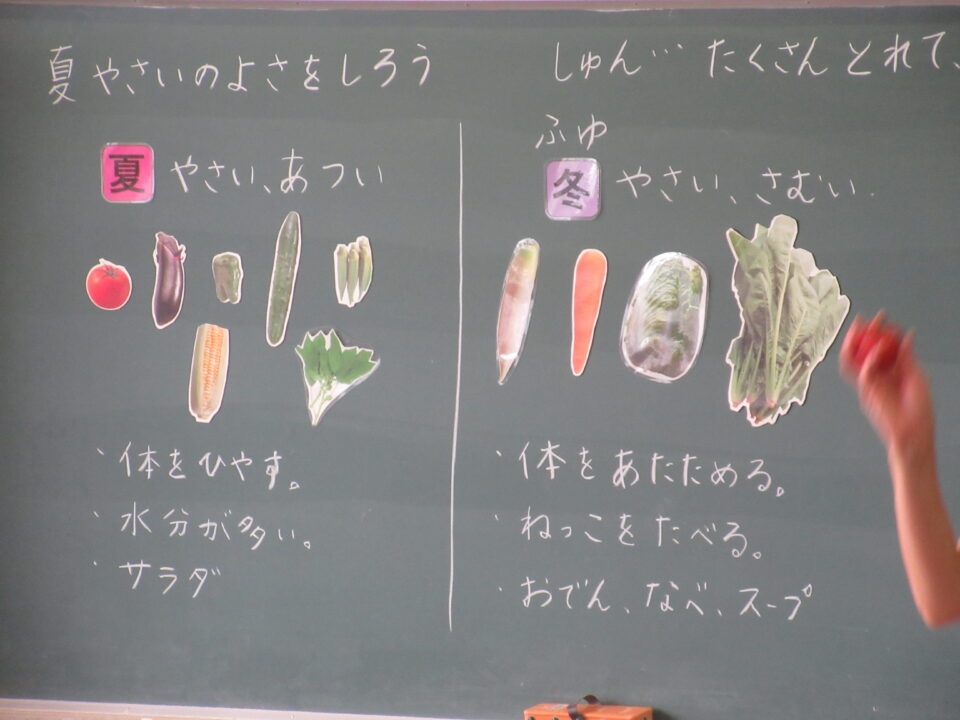 夏やさいのよさをしろう
しゅん… たくさんとれて、
夏 やさい、あつい
・体をひやす。
・水分が多い。
・サラダ
ふゆ
冬 やさい、さむい
・体をあたためる。
・ねっこをたべる。
・おでん、なべ、スープ